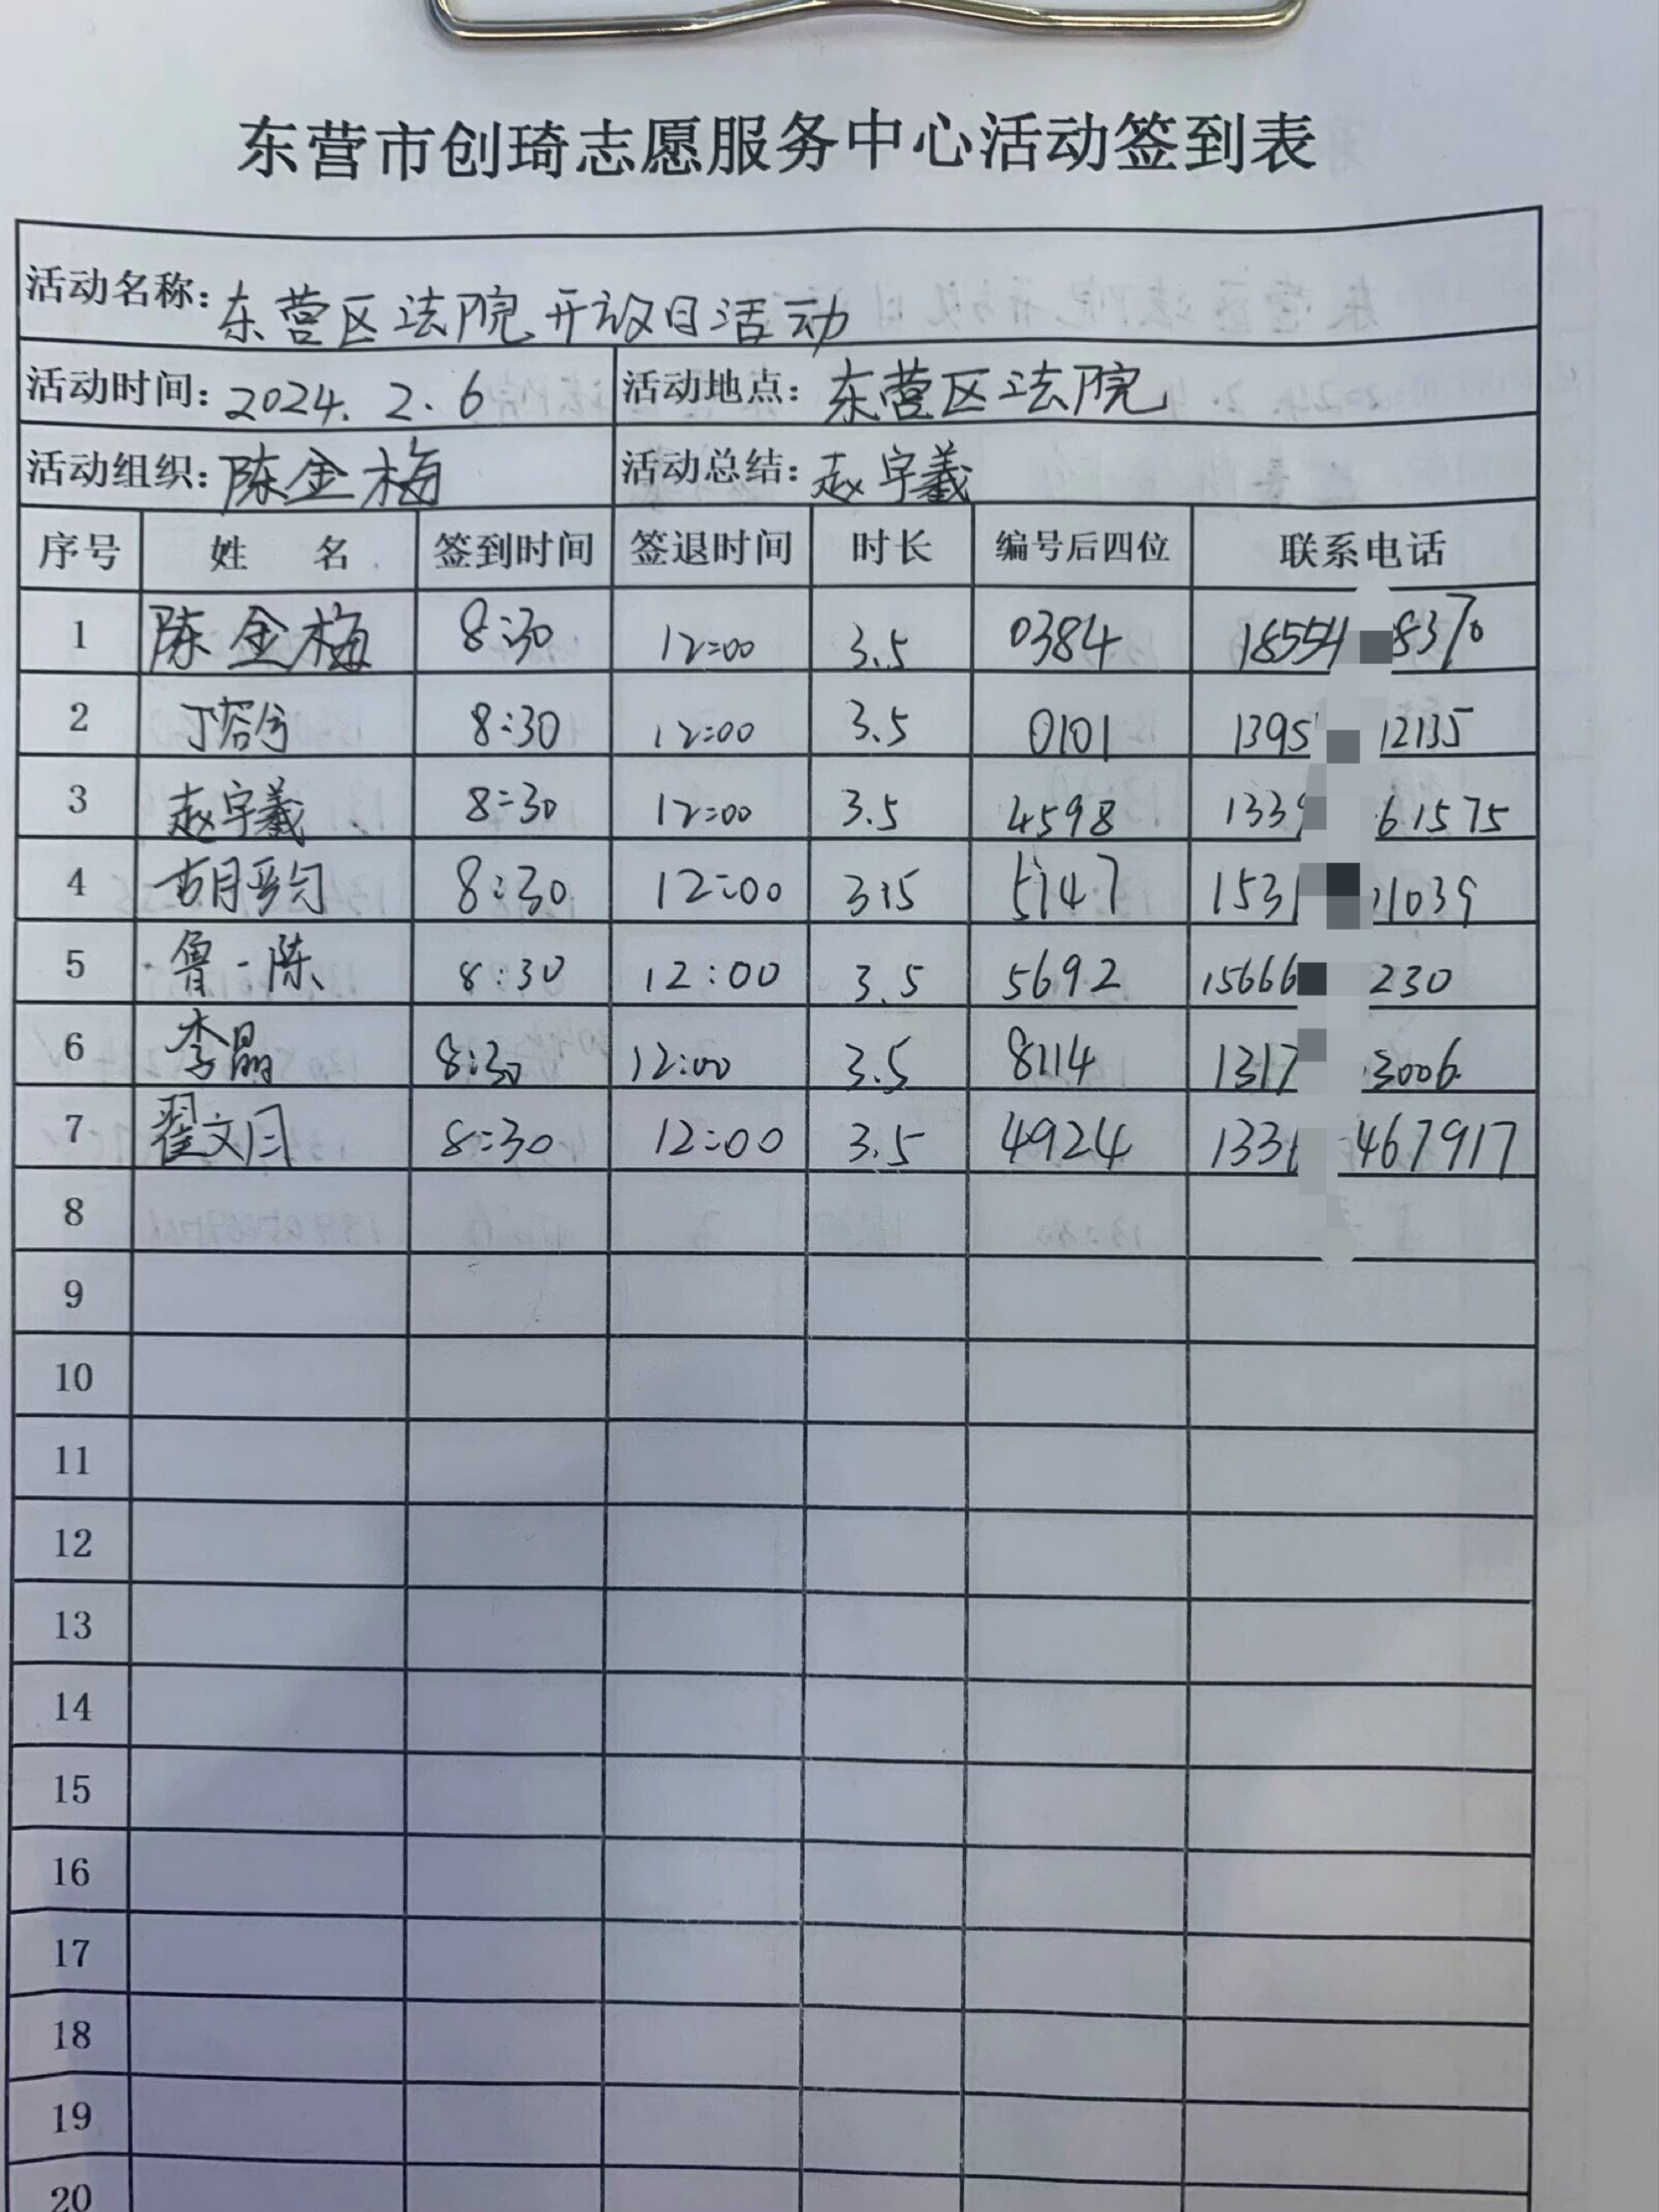 东营市创琦志愿服务中心活动签到表
活动名称：东营区法院开放日活动
活动时间：2024.2.6 活动地点：东营区法院
活动组织：陈金梅 活动总结：赵宇羲
序号 姓 名 签到时间 签退时间 时长 编号后四位 联系电话
1 陈金梅 8:30 12:00 3.5 0384 18554 8370
2 丁 8:30 12:00 3.5 0101 1395 12135
3 赵宇羲 8:30 12:00 3.5 4598 1339 61575
4 胡 8:30 12:00 3.5 5147 1531 11039
5 鲁一陈 8:30 12:00 3.5 5692 15666 230
6 李晶 8:30 12:00 3.5 8114 1317 3006
7 翟文 8:30 12:00 3.5 4924 133 467917
8
9
10
11
12
13
14
15
16
17
18
19
20